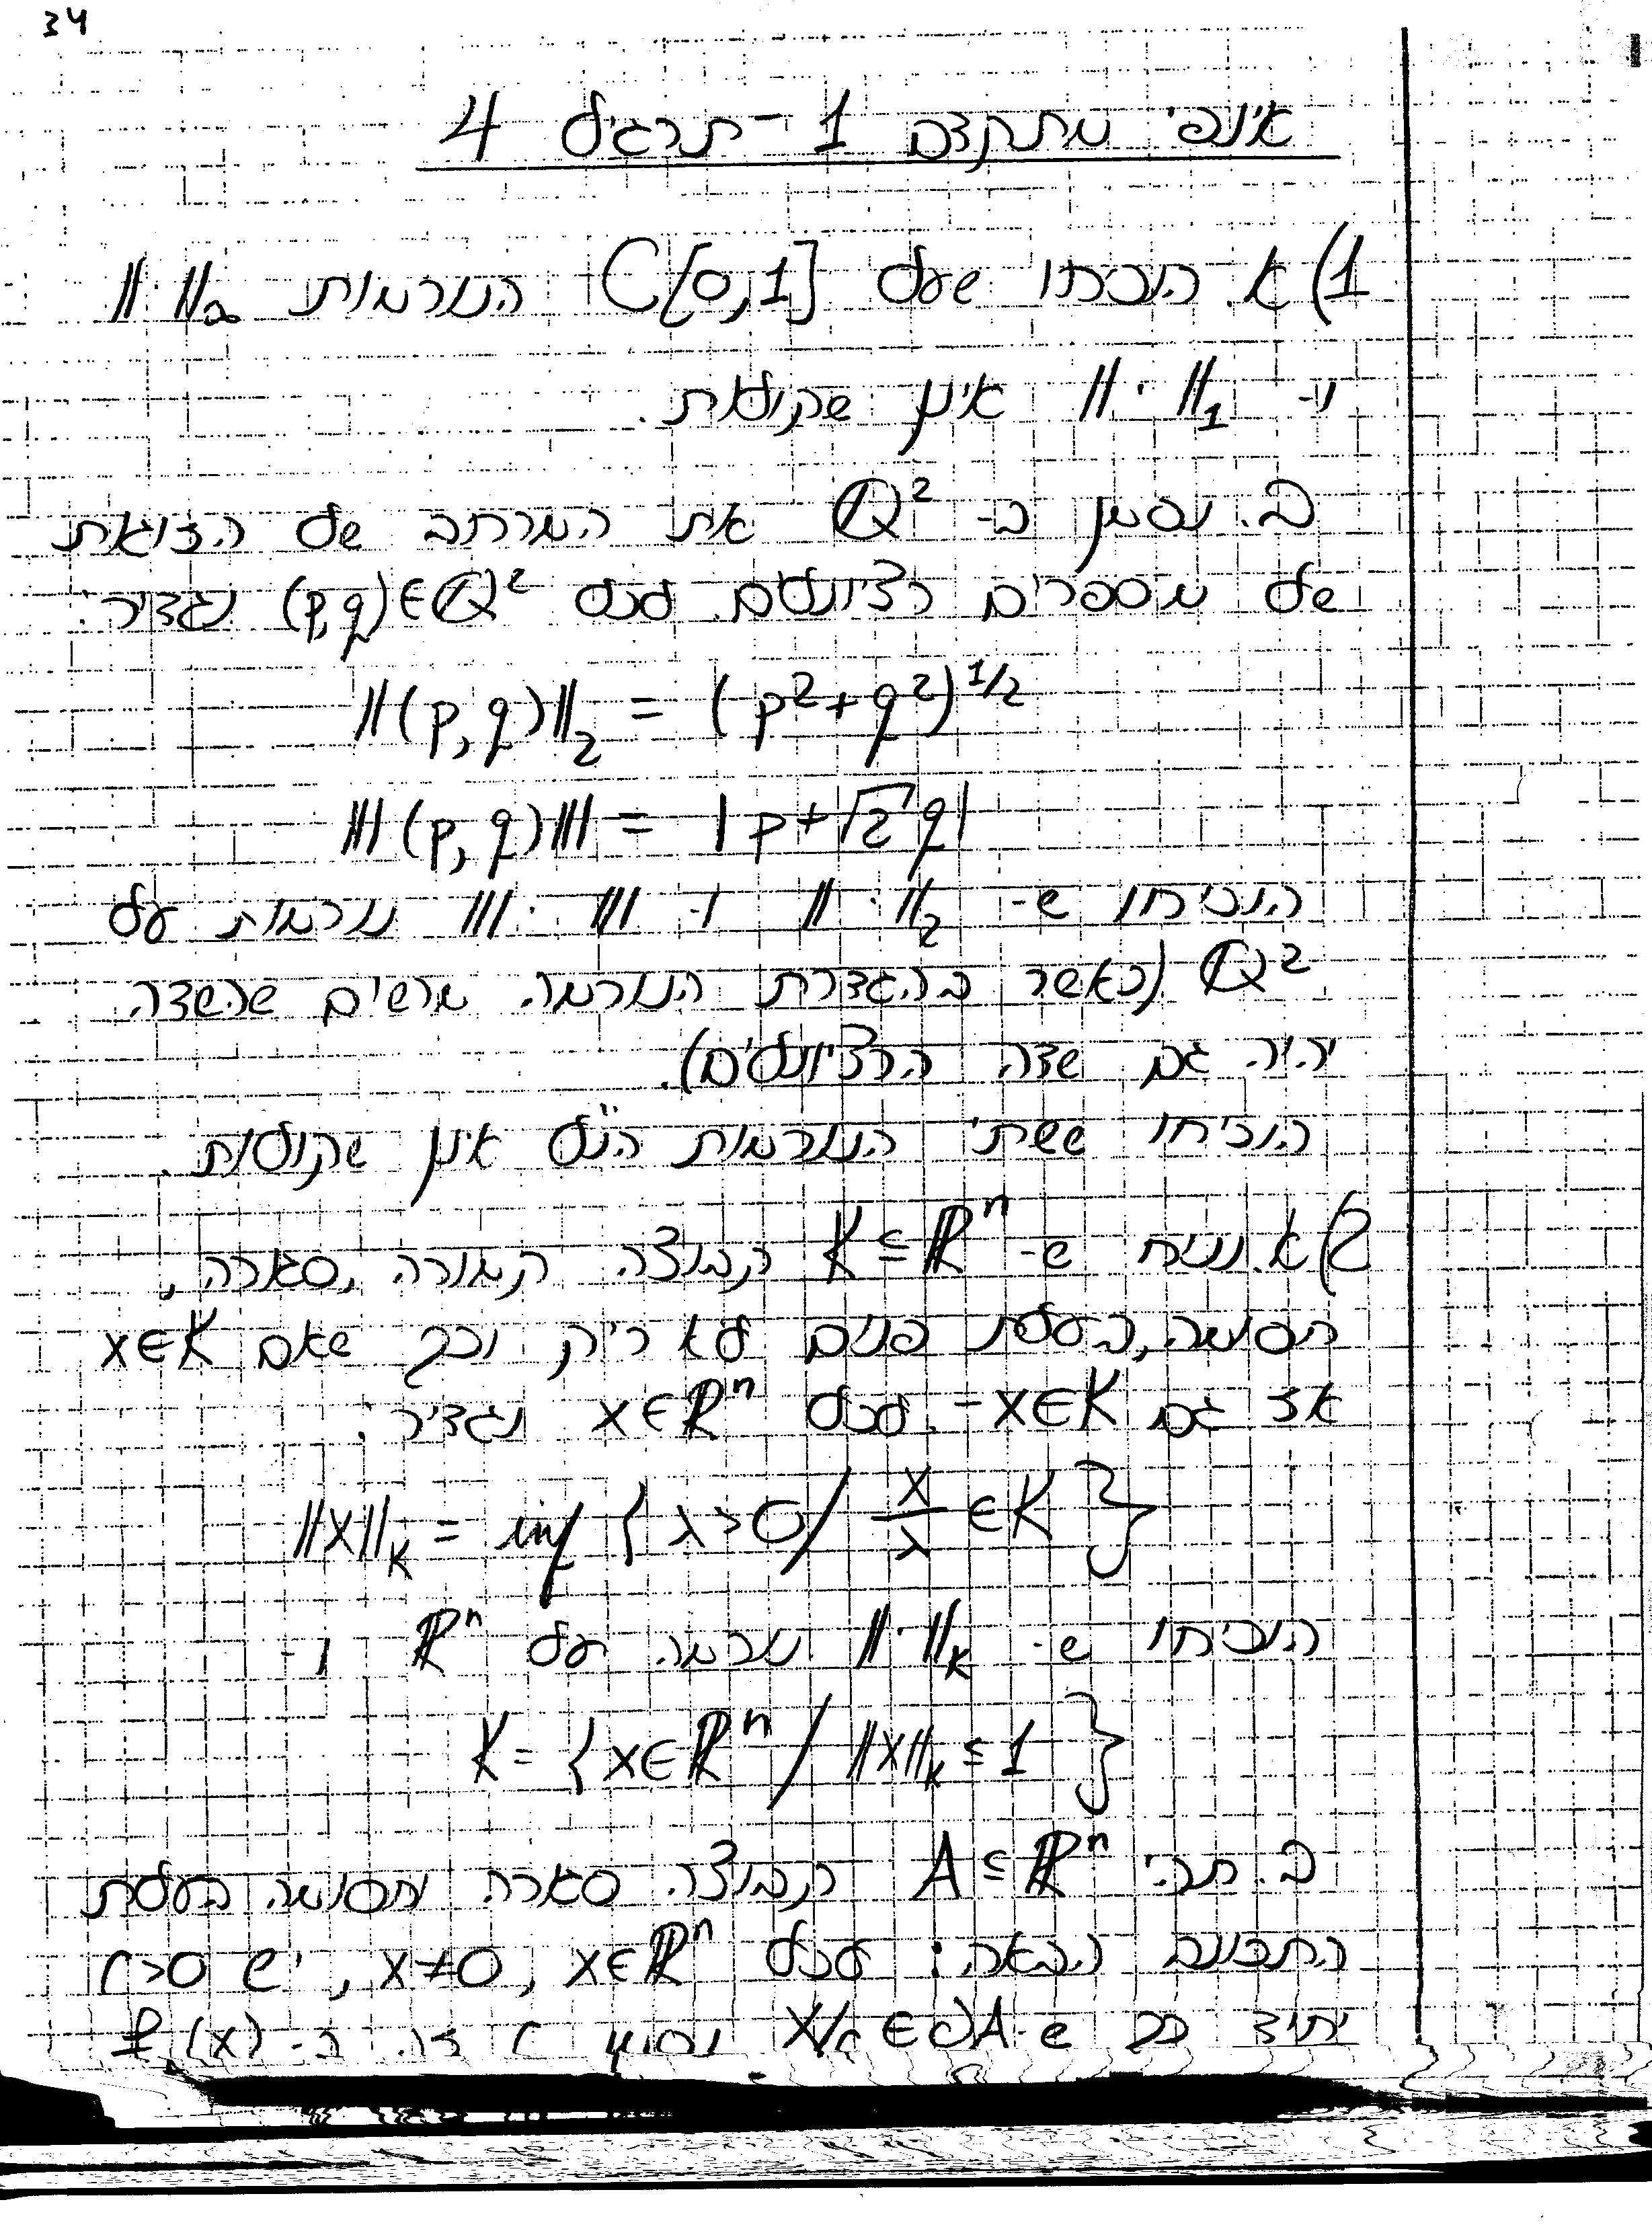 34
אינפי מתקדם 1 - תרגיל 4
1) א. הוכיחו שעל C[0,1] הנורמות ‖·‖∞
ו- ‖·‖₁ אינן שקולות.
ב. נסמן ב- ℚ² את המרחב של הזוגות
של מספרים רציונלים. לכל (p,q)∈ℚ² נגדיר:
‖(p,q)‖₂ = (p²+q²)^{1/2}
|||(p,q)||| = |p+√2 q|
הוכיחו ש- ‖·‖₂ ו- |||·||| נורמות על
ℚ² (כאשר בהגדרת הנורמה מרשים שהשדה
יהיה גם שדה הרציונלים).
הוכיחו ששתי הנורמות הנ"ל אינן שקולות.
2) א. נניח ש- K⊆ℝⁿ קבוצה קמורה, סגורה,
חסומה, בעלת פנים לא ריק וכך שאם x∈K
אז גם -x∈K. לכל x∈ℝⁿ נגדיר:
‖x‖_K = inf { λ>0 / x/λ ∈K }
הוכיחו ש- ‖·‖_K נורמה על ℝⁿ ו-
K = { x∈ℝⁿ / ‖x‖_K ≤ 1 }
ב. תהי A⊆ℝⁿ קבוצה סגורה וחסומה בעלת
התכונה הבאה: לכל x∈ℝⁿ, x≠0, יש r>0
יחיד כך ש- x/r ∈∂A נסמן r זה ב- f(x)